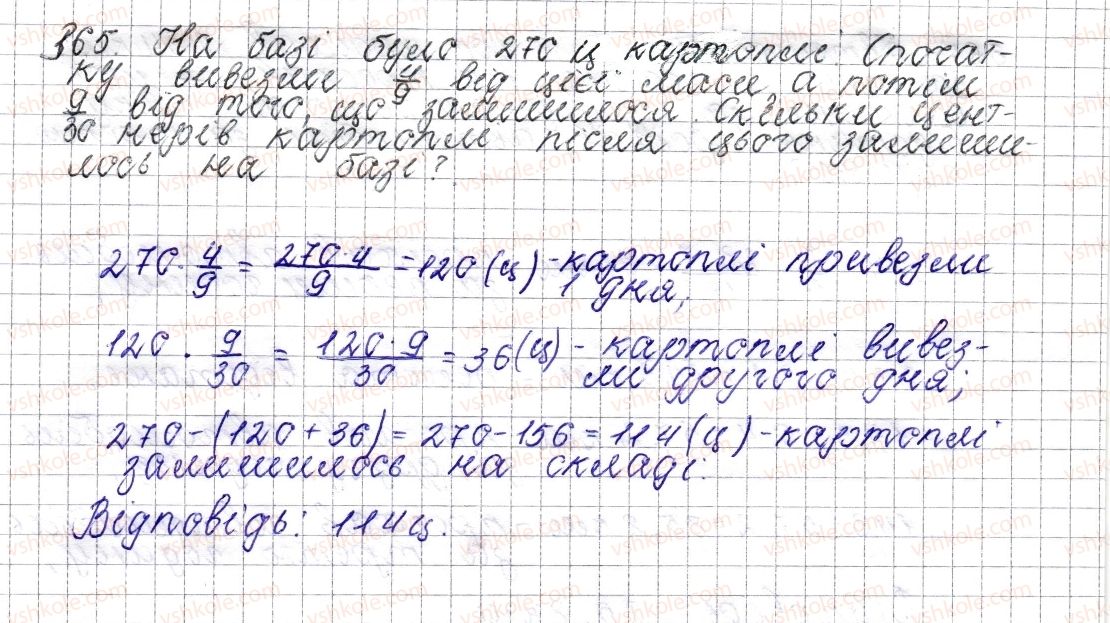 365. На базі було 270 ц картоплі. Спочат-
ку вивезли 4/9 від цієї маси, а потім
9/30 від того, що залишилося. Скільки цент-
нерів картоплі після цього залиши-
лось на базі?
270 · 4/9 = 270·4/9 = 120 (ц) - картоплі привезли
1 дня;
120 · 9/30 = 120·9/30 = 36 (ц) - картоплі вивез-
ли другого дня;
270 - (120 + 36) = 270 - 156 = 114 (ц) - картоплі
залишилось на складі.
Відповідь: 114ц.